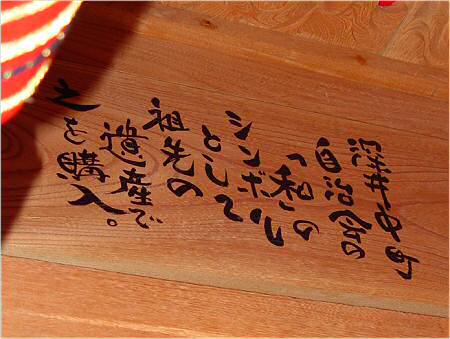 井中町
自治会の
「和」の
シンボル
として
祖先の
遺産で
之を購入。